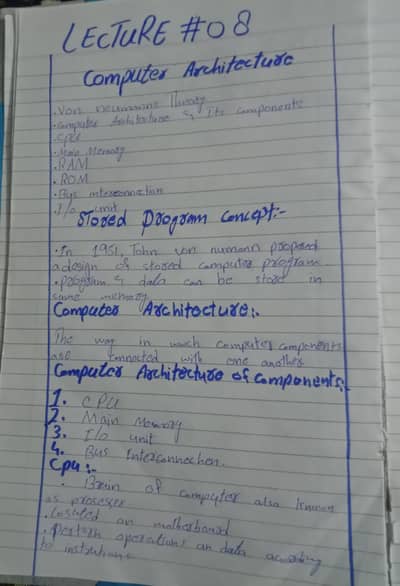 LECTURE #08
Computer Architecture
. Von neumanns Theory
. Computer Architecture & its components
. CPU
. Main Memory
. RAM
. ROM
. Bus interconnection
. I/o unit
Stored Program Concept:-
. In 1951, John von numann proposed
a design of stored computer program.
. program & data can be store in
same memory
Computer Architecture:-
The way in which computer components
are connected with one another
Computer Architecture of components:-
1. CPU
2. Main Memory
3. I/o unit
4. Bus Interconnection.
Cpu:-
. Brain of computer also known
as processer
. on motherboard
. perform operations on data according
to